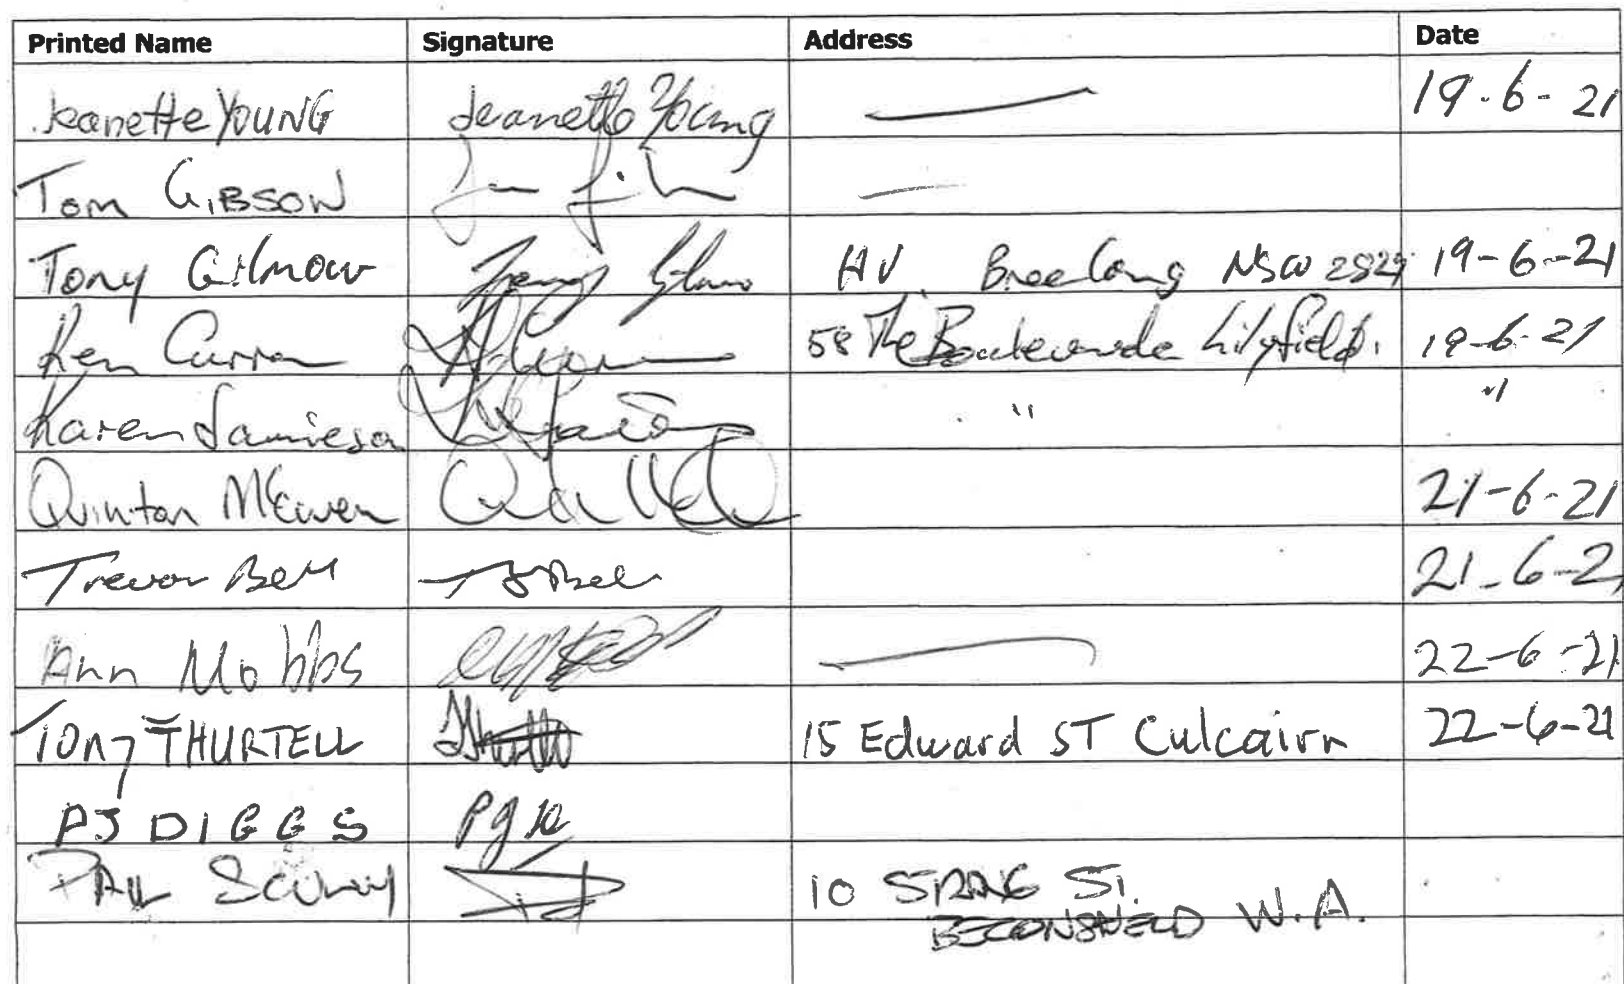 Printed Name Signature Address Date
Jeanette YOUNG Jeanette Young 19-6-21
Tom GIBSON
Tony Gilmour HV Breelong NSW 19-6-21
Ken Curran 58 The Boulevarde Lilyfield. 19-6-21
Karen Jamieson " "
Quinton McEwen 21-6-21
Trevor Bell 21-6-2
Ann Mobbs 22-6-21
Tony THURTELL 15 Edward ST Culcairn 22-6-21
PJ DIGGS
PAUL SCULLY 10 STRANG ST.
BECONSFIELD W.A.